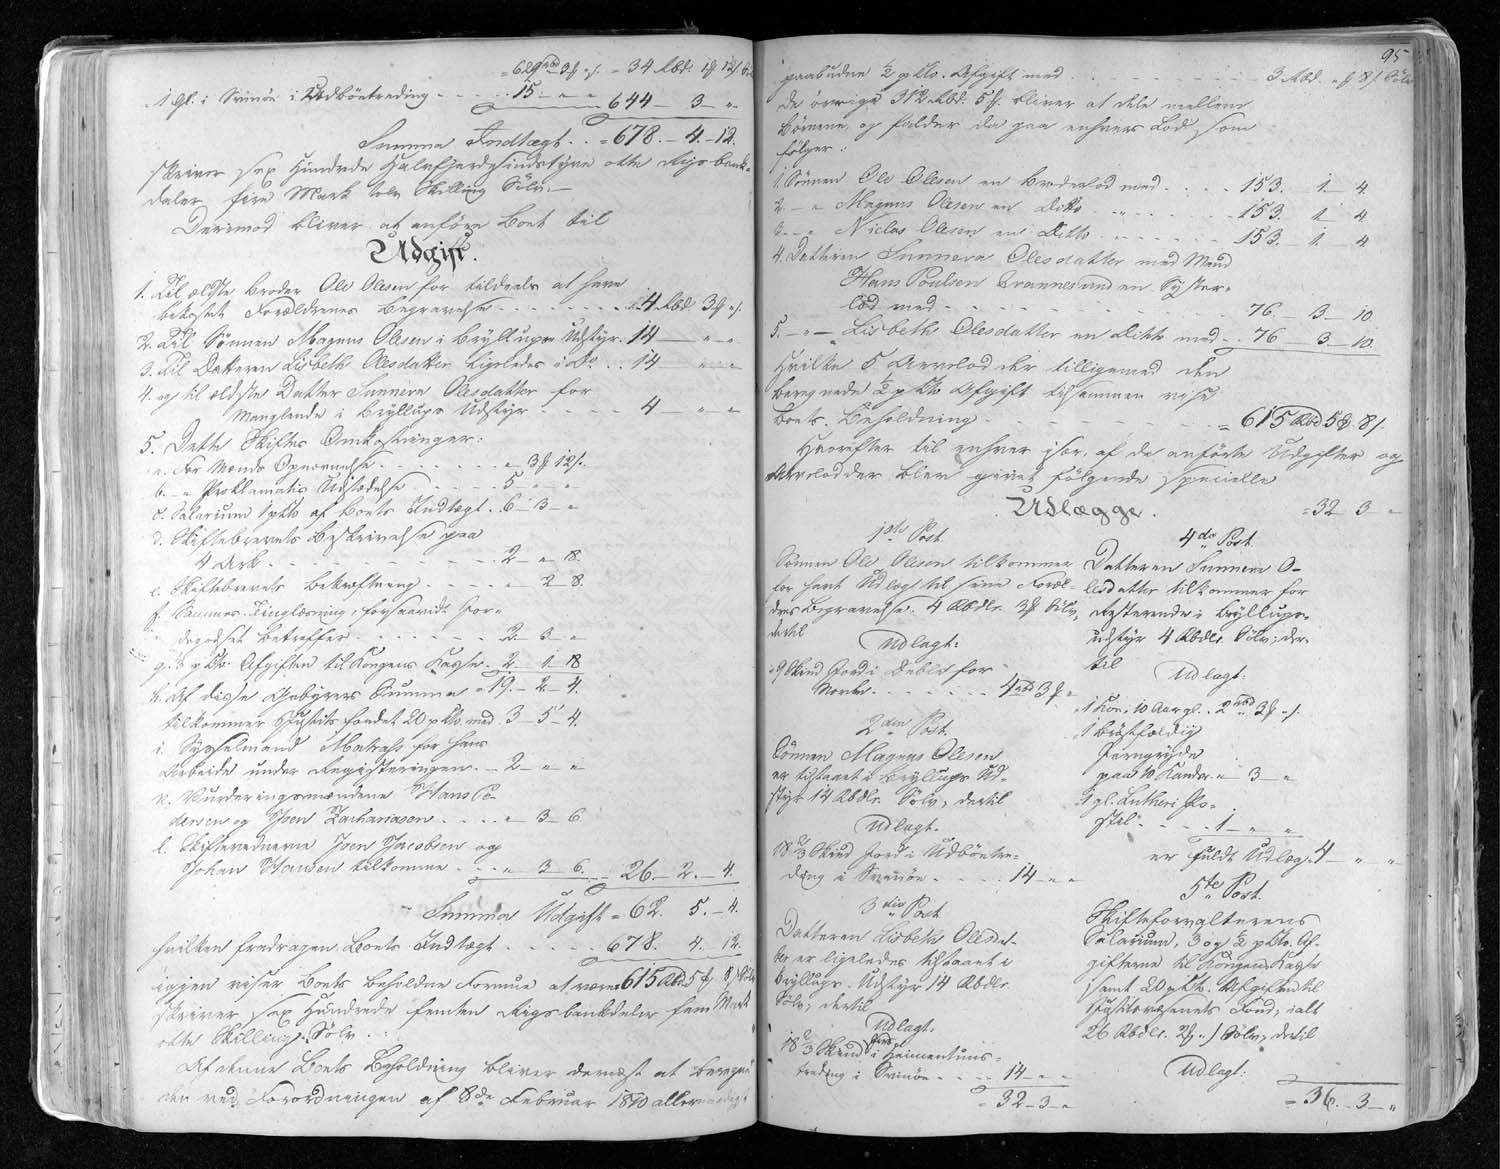 = 629 rbd 3 ʄ " /. = 34 Rbd. 1 ʄ 12 /.
1 Gl. i Svinöe i Udböntreding . . . . 15 — " — "
644 — 3 — "
Summa Indtægt . . = 678. — 4. — 12.
skriver sex Hundrede Halvfjerdesindstyve otte Rigsbank-
daler fire Mark tolv Skilling Sölv. —
Derimod bliver at anföre Boet til
Udgift.
1. Til ældste Broder Ole Olesen for tildeels at have
bekostet Forældrenes Begravelse . . . . . . . 4 Rbd. 3 ʄ " /.
2. Til Sönnen Magnus Olesen i Bryllups Udstyr. 14 — " — "
3. Til Datteren Lisbeth Olesdatter ligeledes i Do. . . 14 — " — "
4. og til ældste Datter Sunneva Olesdatter for
Manglende i Bryllups Udstyr . . . . 4 — " — "
5. Dette Skiftes Omkostninger:
a. For Mænds Opnævnelse . . . . . . . " 3 ʄ 12 /.
b. — " Proklamatis Udstædelse . . . . . 5 — " — "
c. Salarium 1 pCto af Boets Indtægt . 6 — 3 — "
d. Skiftebrevets Beskrivelse paa
4 Ark . . . . . . . . . . . 2 — " — 18.
e. Skiftebrevets bekræftning . . . . . " 2 8.
f. Sammes Tinglæsning, forsaavidt Jor-
degodset betreffer . . . . . . . 2 — 3 — "
g. 3 pCto. Afgiften til Kongens Kasse . 2. 1. 18
h. Af disse Gebyrers Summa = 19. — 2 — 4.
tilkommer Justits fondet 20 pCto med . 3 — 5 — 4.
i. Sysselmand Matrahs for hans
Arbeide under Registeringen . . 2 — " — "
k. Vurderingsmændene Hans Pe-
dersen og Joen Zachariasen . . . . " 3 — 6.
l. Skiftevidnerne Joen Jacobsen og
Johan Hansen tilkomme . . . " 3 — 6. . . 26. — 2. — 4.
Summa Udgift = 62. 5. — 4.
hvilken fradragen Boets Indtægt . . . . . 678. 4. 12.
igjen viser Boets beholdne Formue at være 615 Rbd 5 ʄ 8 /. Sölv
skriver sex Hundrede femten Rigsbankdaler fem Mark
otte Skilling Sölv.
Af denne Boets Beholdning bliver dernæst at beregne
den ved Forordningen af 8de Februar 1810 allernaadigst
95
paabudne ½ pCto. Afgift med . . . . . . . . 3 Rbd. " ʄ 8 /. Sölv
De övrige 312 Rbd. 5 ʄ. bliver at dele mellem
Börnene, og falder da paa enhvers Lod, som
fölger:
1. Sönnen Ole Olesen en Broderlod med . . . . 153. — 1 — 4.
2. — " Magnus Olesen en Ditto . . . . . 153. 1 — 4
3. — " Niclas Olesen en Ditto . . . . . 153. — 1. — 4
4. Datteren Sunneva Olesdatter med Mand
Hans Poulsen Trannesund en Syster-
lod med . . . . . . . . . . 76. — 3 — 10.
5. — " — Lisbeth Olesdatter en Ditto med . . 76 — 3 — 10.
Hvilke 5 Arvelodder tilligemed den
beregnede ½ pCto Afgift tilsammen viser
Boets Beholdning . . . . . . . . = 615 Rbd 5 ʄ. 8 /.
Hvorefter til enhver især, af de anförte Udgifter og
Arvelodder blev givet fölgende specielle
Udlægge. = 32 — 3 — "
1ste Post
Sönnen Ole Olesen tilkommer
for havt Udlæg til sine Foræl-
dres Begravelse. 4 Rbdlr. 3 ʄ Sölv,
dertil
Udlagt:
9 Skind Jord i Deble for
Norden . . . . . . . 4 rbd 3 ʄ "
2den Post.
Sönnen Magnus Olesen
er tilstaaet i Bryllups Ud-
styr 14 Rbdlr. Sölv; dertil
Udlagt.
18 2/3 Skind Jord i Udböntre-
ding i Svinöe . . . . 14 — " — "
3die Post
Datteren Lisbeth Olesdat-
ter er ligeledes tilstaaet i
Bryllups Udstyr 14 Rbdlr.
Sölv, dertil
Udlagt.
18 2/3 Skind Jord i Heimentuns-
treding i Svinöe . . . . 14 — " — "
= 32 — 3 — "
4de Post
Datteren Sunneva O-
lesdatter tilkommer for
Resterende i Bryllups-
udstyr 4 Rbdlr. Sölv; der-
til
Udlagt:
1 Koe, 10 Aar gl. . 2 rbd 3 ʄ " /.
1 bröstfældig
Jerngryde
paa 10 Kander . " 3 — "
1 gl. Lutheri Po-
stil . . . . 1 — " — "
er fuldt Udlæg. 4 — " — "
5te Post.
Skifteforvalterens
Salarium, 3 og ½ pCto. Af-
gifterne til Kongens Kasse
samt 20 pCto. Afgiften til
Justitsvæsenets Fond, i alt
26 Rbdlr. 2 ʄ. 4 / Sölv, dertil
Udlagt:
= 36. — 3 — "